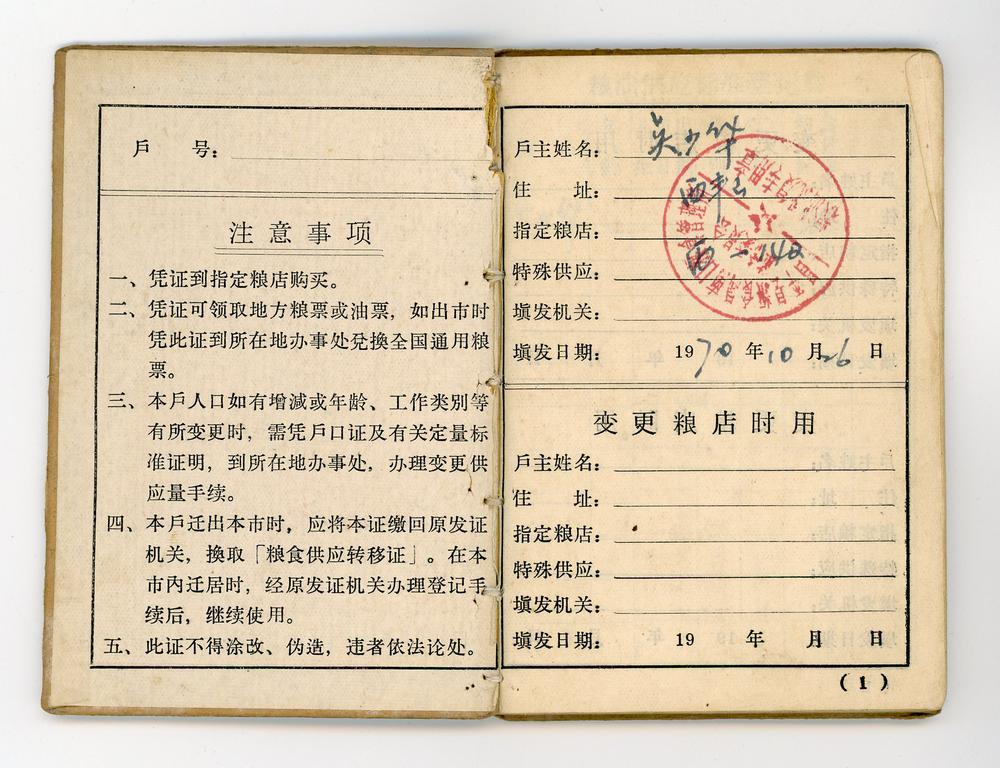 戶 号:
注意事项
一、凭证到指定粮店购买。
二、凭证可领取地方粮票或油票，如出市时
凭此证到所在地办事处兑換全国通用粮
票。
三、本戶人口如有增減或年龄、工作类別等
有所变更时，需凭戶口证及有关定量标
准证明，到所在地办事处，办理变更供
应量手续。
四、本戶迁出本市时，应将本证缴回原发证
机关，換取「粮食供应转移证」。在本
市內迁居时，经原发证机关办理登记手
续后，继续使用。
五、此证不得涂改、伪造，违者依法论处。
戶主姓名: 吴少华
住 址:
指定粮店:
特殊供应: 西一142
填发机关:
填发日期: 1970年10月26日
变更粮店时用
戶主姓名:
住 址:
指定粮店:
特殊供应:
填发机关:
填发日期: 19 年 月 日
(1)